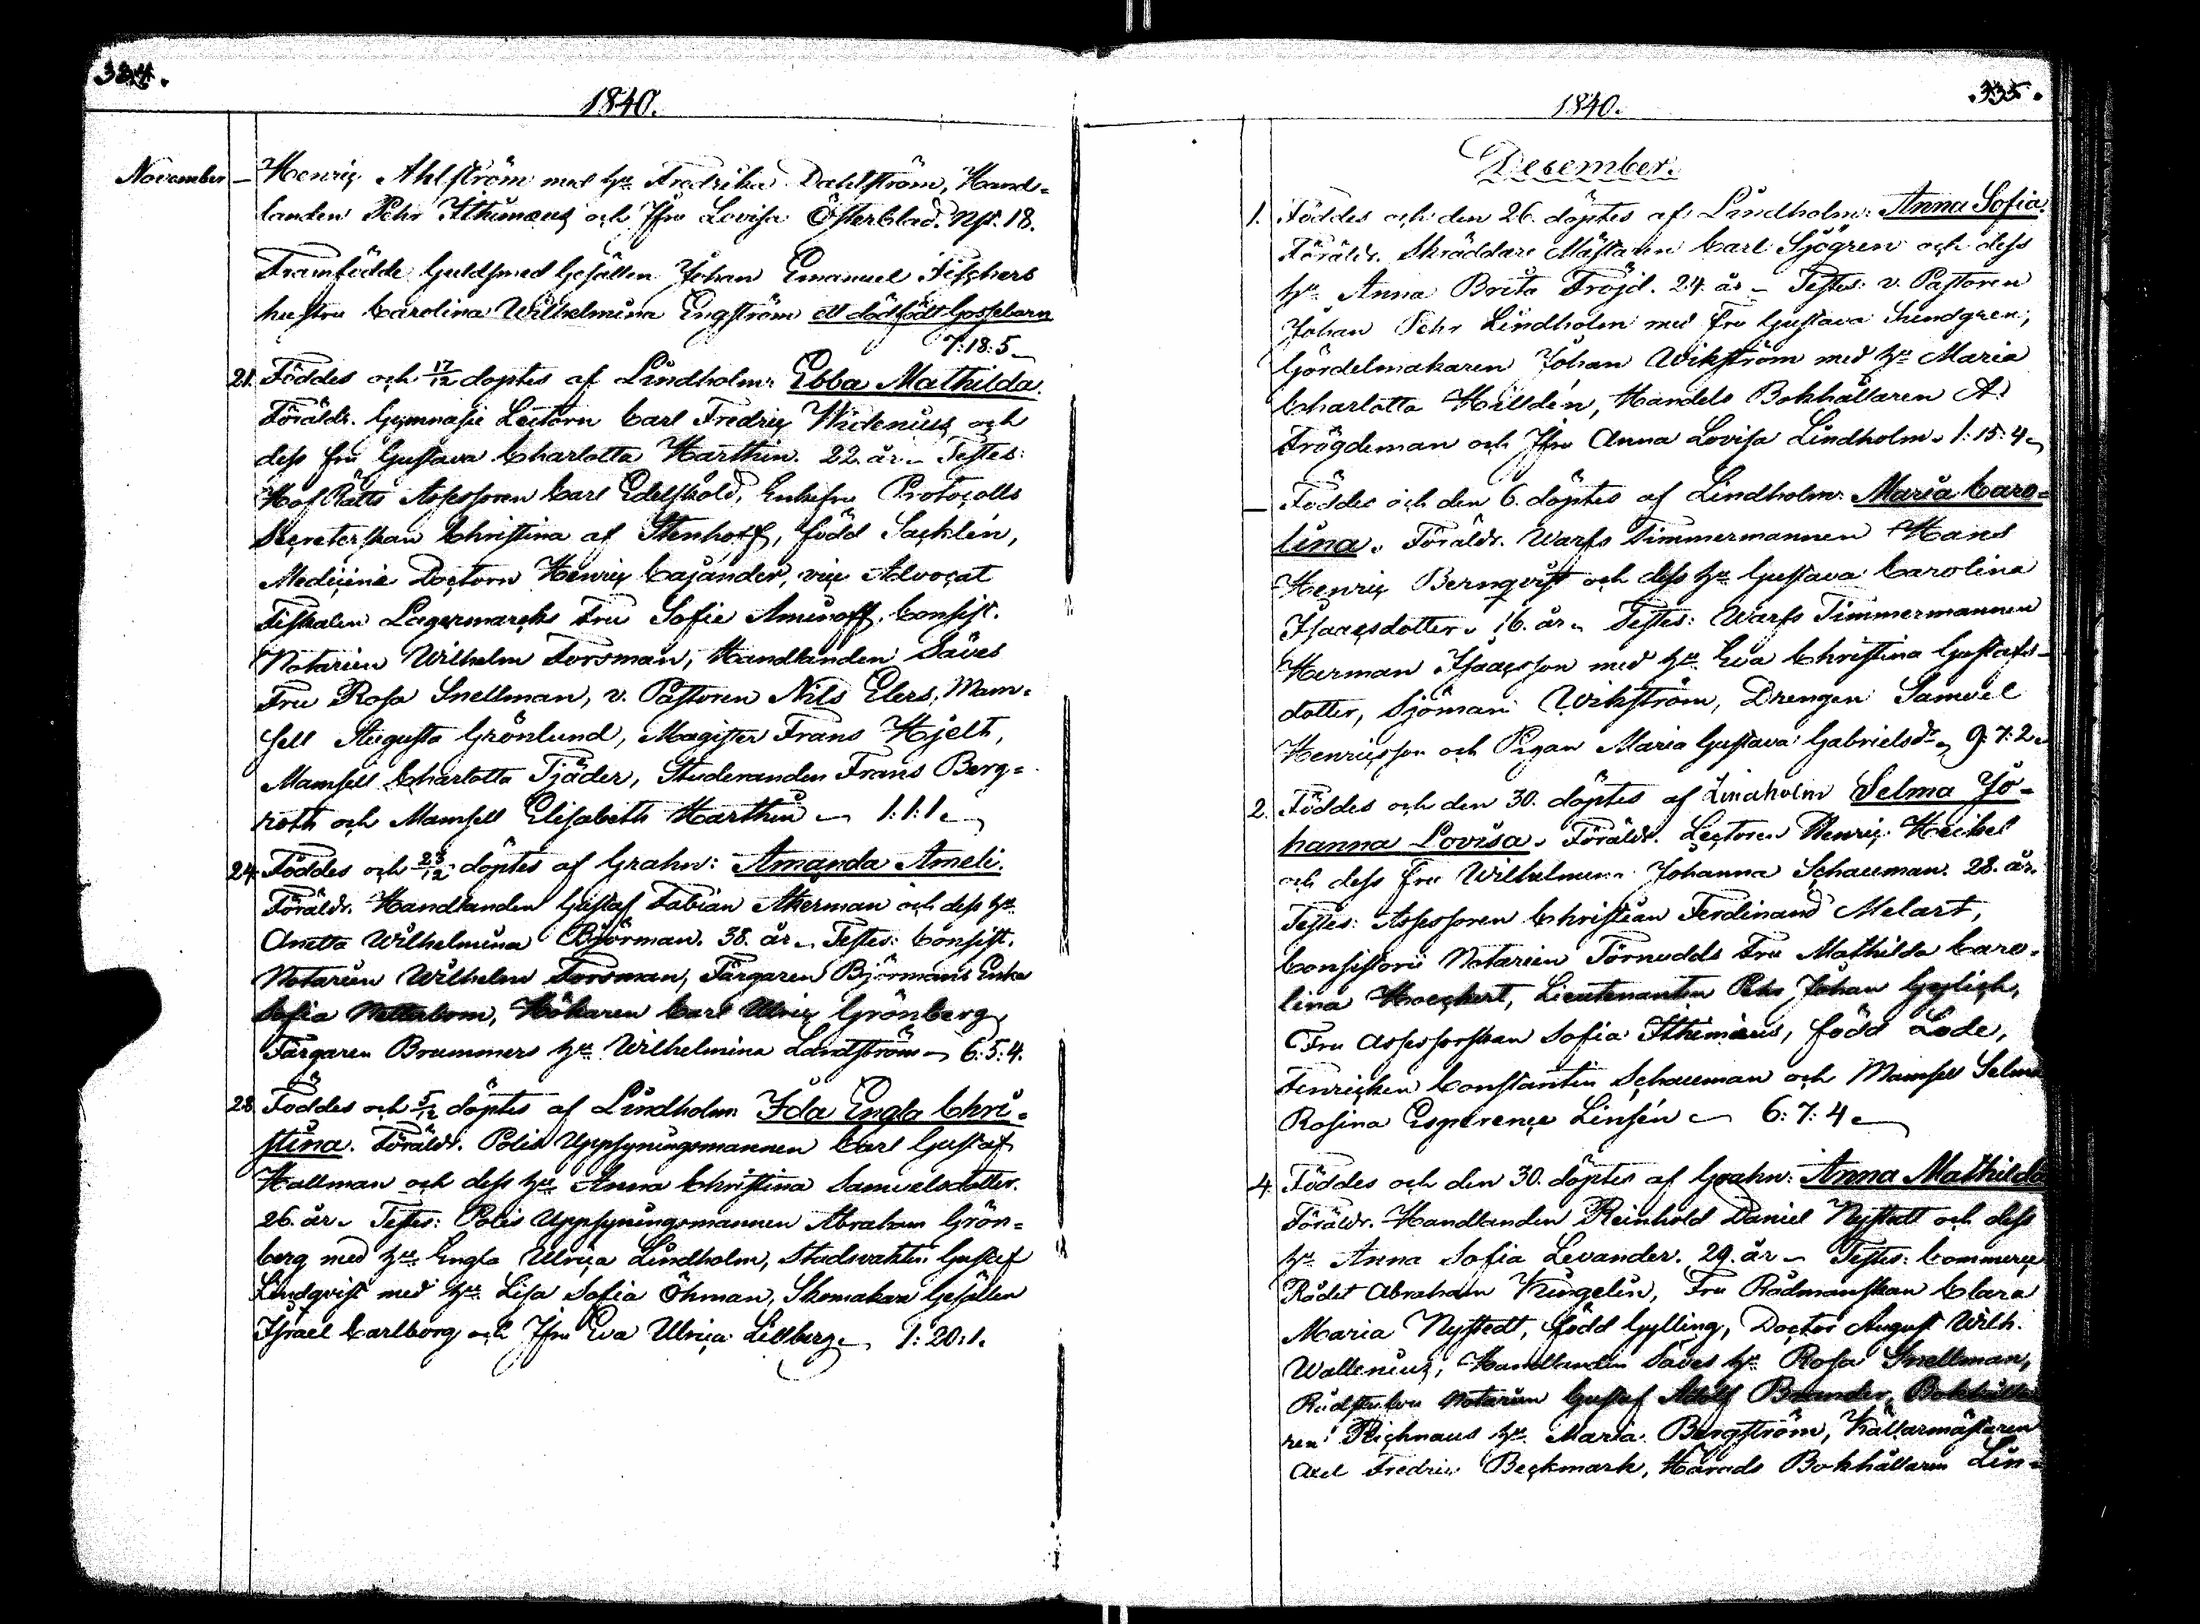 334.
1840.
November
— Henric Ahlström med hu Fredrika Dahlström, Hand-
landen Pehr Ithimæus och Jfru Lovisa Österblad. Nst. 18.
Framfödde Guldsmed Gesällen Johan Emanuel Fischers
hustru Carolina Wilhelmina Engström ett dödfödt Gossebarn
7:18:5
21. Föddes och 17/12 döptes af Lindholm: Ebba Mathilda.
Föräldr. Gymnasie Lectorn Carl Fredric Widenius och
dess fru Gustava Charlotta Harthin. 22. år. Testes:
Hof Rätts Assessoren Carl Edelsköld, Enkefru Protocolls
Secreterskan Christina af Stenhoff, född Sacklén,
Medicinæ Doctorn Henric Cajander, vice Advocat
Fiskalen Lagermarcks Fru Sofie Aminoff, Consist.
Notarien Wilhelm Forsman, Handlanden Säves
Fru Rosa Snellman, v. Pastoren Nils Elers, Mam-
sell Augusta Grönlund, Magister Frans Hjelt,
Mamsell Charlotta Tjäder, Studeranden Frans Berg-
roth och Mamsell Elisabeth Harthin 1:1:1.
24. Föddes och 23/12 döptes af Grahn: Amanda Ameli.
Föräldr. Handlanden Gustaf Fabian Åkerman och dess hu
Anetta Wilhelmina Björman. 38. år. Testes: Consist.
Notarien Wilhelm Forsman, Färgaren Björmans Enka
Sofia Netterbom, Hökaren Carl Ulric Grönberg,
Färgaren Brummers hu Wilhelmina Landström 6:5:4.
28. Föddes och 5/12 döptes af Lindholm Ida Engla Chri-
stina. Föräldr. Polis Uppsyningsmannen Carl Gustaf
Hallman och dess hu Anna Christina Samuelsdotter.
26. år. Testes: Polis Uppsyningsmannen Abraham Grön-
berg med hu Engla Ulrica Lindholm, Stadsvakten Gustaf
Lindqvist med hu Lisa Sofia Öhman, Skomakare Gesällen
Israel Carlborg och Jfru Eva Ulrica Lillberg 1:20:1.
335.
1840.
December.
1. Föddes och den 26. döptes af Lindholm: Anna Sofia.
Föräldr. Skräddare Mästaren Carl Sjögren och dess
hu Anna Brita Fröjd. 24. år. Testes: v. Pastoren
Johan Pehr Lindholm med fru Gustava Sundgren,
Gördelmakaren Johan Wikström med hu Maria
Charlotta Helldén, Handels Bokhållaren A:
Frögdeman och Jfru Anna Lovisa Lindholm. 1:15:4
— Föddes och den 6. döptes af Lindholm: Maria Caro-
lina. Föräldr. Warfs Timmermannen Hans
Henric Bernqvist och dess hu Gustava Carolina
Isaacsdotter. 16. år. Testes: Warfs Timmermannen
Herman Isaacsson med hu Eva Christina Gustafs-
dotter, Sjöman Wikström, Drengen Samuel
Henricsson och Pigan Maria Gustava Gabrielsdr. 9:7:2.
2. Föddes och den 30. döptes af Lindholm Selma Jo-
hanna Lovisa. Föräldr. Lectoren Henric Heikel
och dess fru Wilhelmina Johanna Schauman. 28. år.
Testes: Assessoren Christian Ferdinand Melart,
Consistorii Notarien Törnudds Fru Mathilda Caro-
lina Hoeckert, Lieutenanten Pehr Johan Gylich,
Fru Assessorskan Sofia Ithimæus, född Lode,
Fenricken Constantin Schauman och Mamsell Selma
Rosina Esperence Linsén 6:7:4
4. Föddes och den 30. döptes af Grahn: Anna Mathilda
Föräldr. Handlanden Reinhold Daniel Nystedt och dess
hu Anna Sofia Levander. 29. år. Testes: Commerce
Rådet Abraham Kingelin, Fru Rådmanskan Clara
Maria Nystedt, född Gylling, Doctor August Wilh.
Wallenius, Handlanden Säves hu Rosa Snellman,
Rådstufvu Notarien Gustaf Adolf Brander, Bokhålla-
ren Richnaus hu Maria Bergström, Källarmästaren
Axel Fredric Beckmark, Härads Bokhållaren Lin-